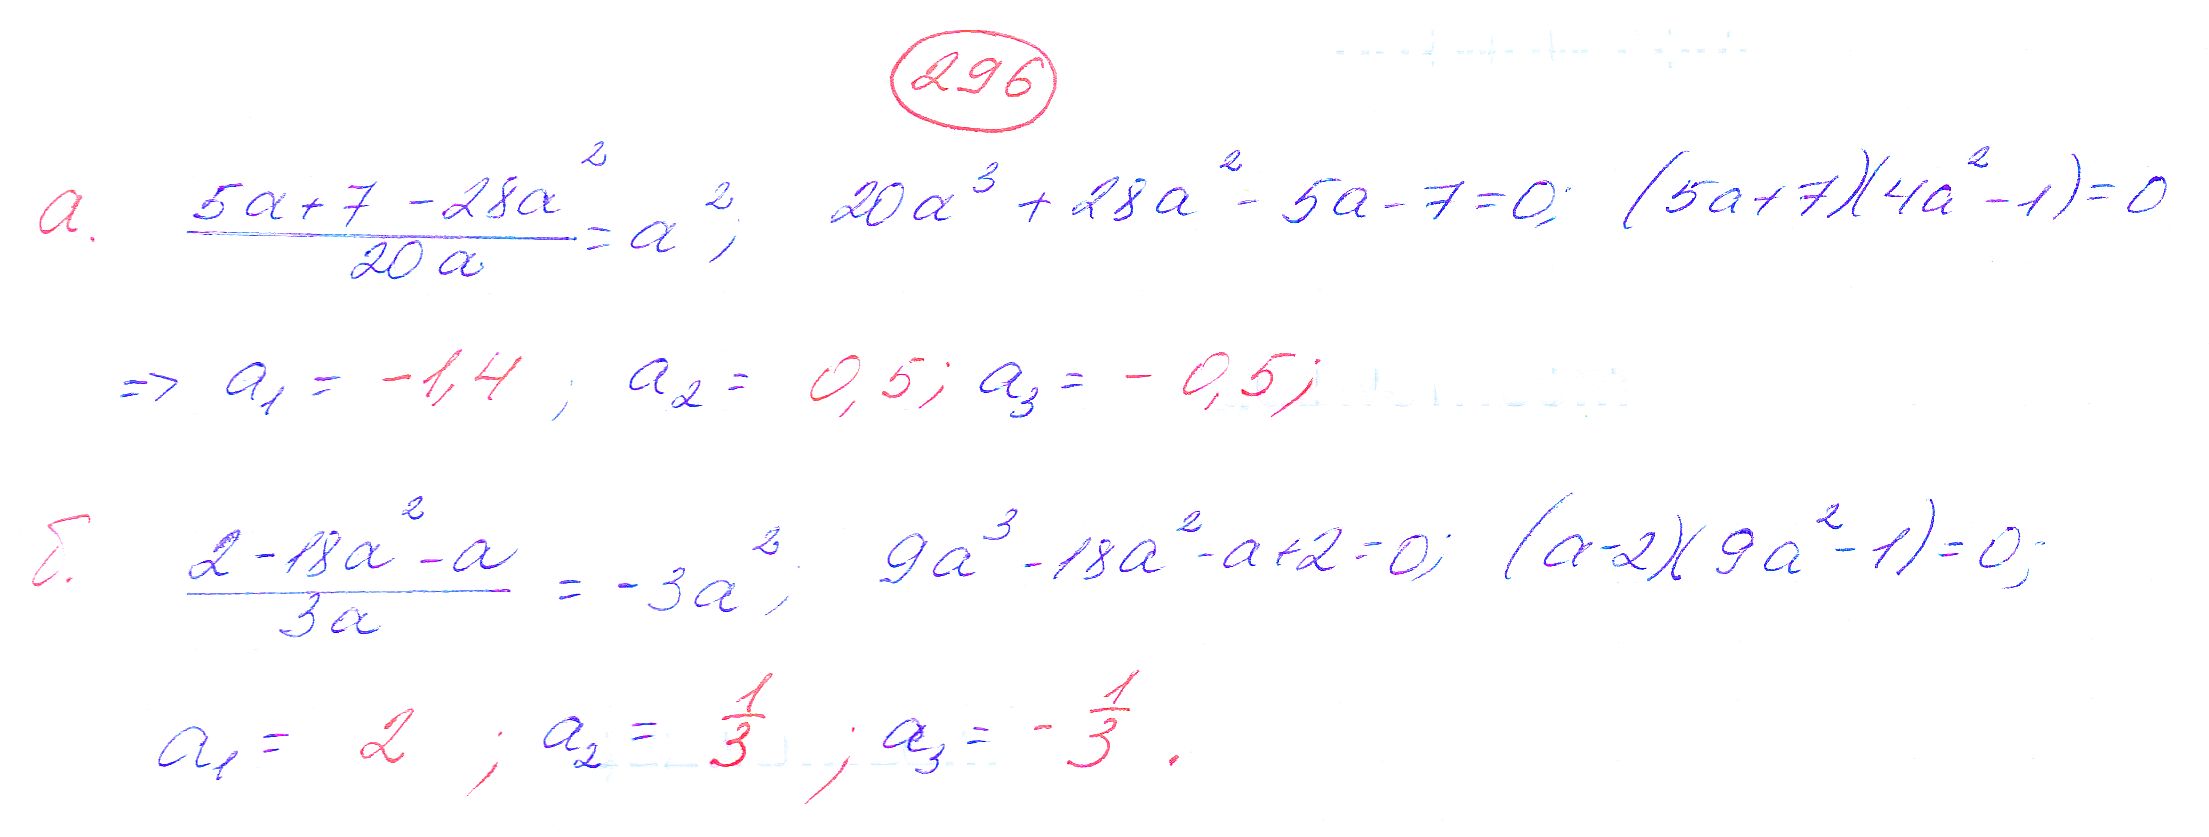 296
а. (5a+7-28a²)/(20a) = a²; 20a³+28a²-5a-7=0; (5a+7)(4a²-1)=0
=> a₁ = -1,4 ; a₂ = 0,5; a₃ = -0,5;
б. (2-18a²-a)/(3a) = -3a²; 9a³-18a²-a+2=0; (a-2)(9a²-1)=0;
a₁ = 2 ; a₂ = 1/3 ; a₃ = -1/3 .